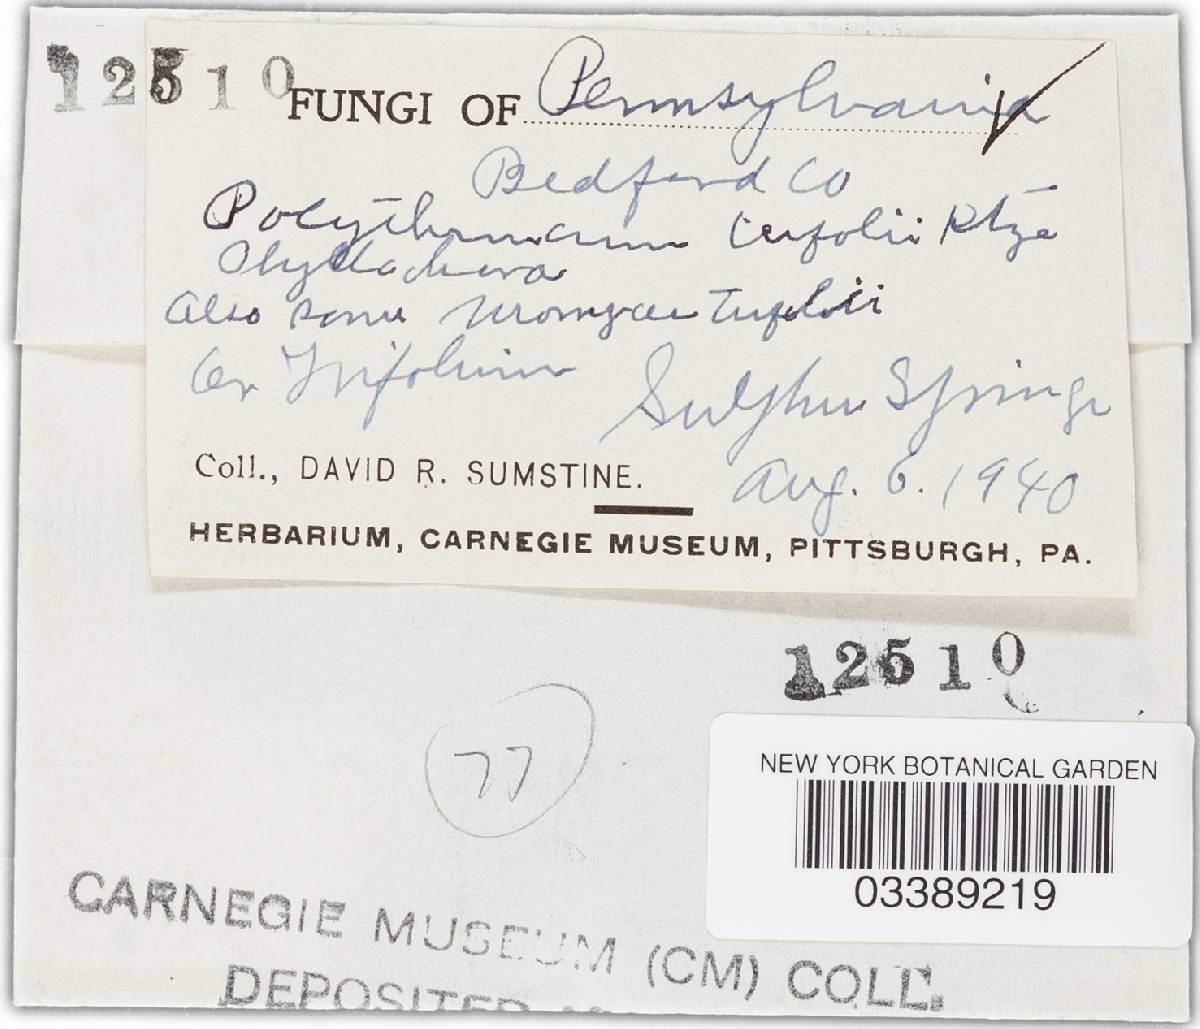 12510
FUNGI OF Pennsylvania
Bedford Co
Polythrincium trifolii Ktze
Phyllachora
Also some Uromyces Trifolii
On Trifolium
Sulphur Springs
Coll., DAVID R. SUMSTINE.
Aug. 6. 1940
HERBARIUM, CARNEGIE MUSEUM, PITTSBURGH, PA.
12510
77
NEW YORK BOTANICAL GARDEN
03389219
CARNEGIE MUSEUM (CM) COLL.
DEPOSITED